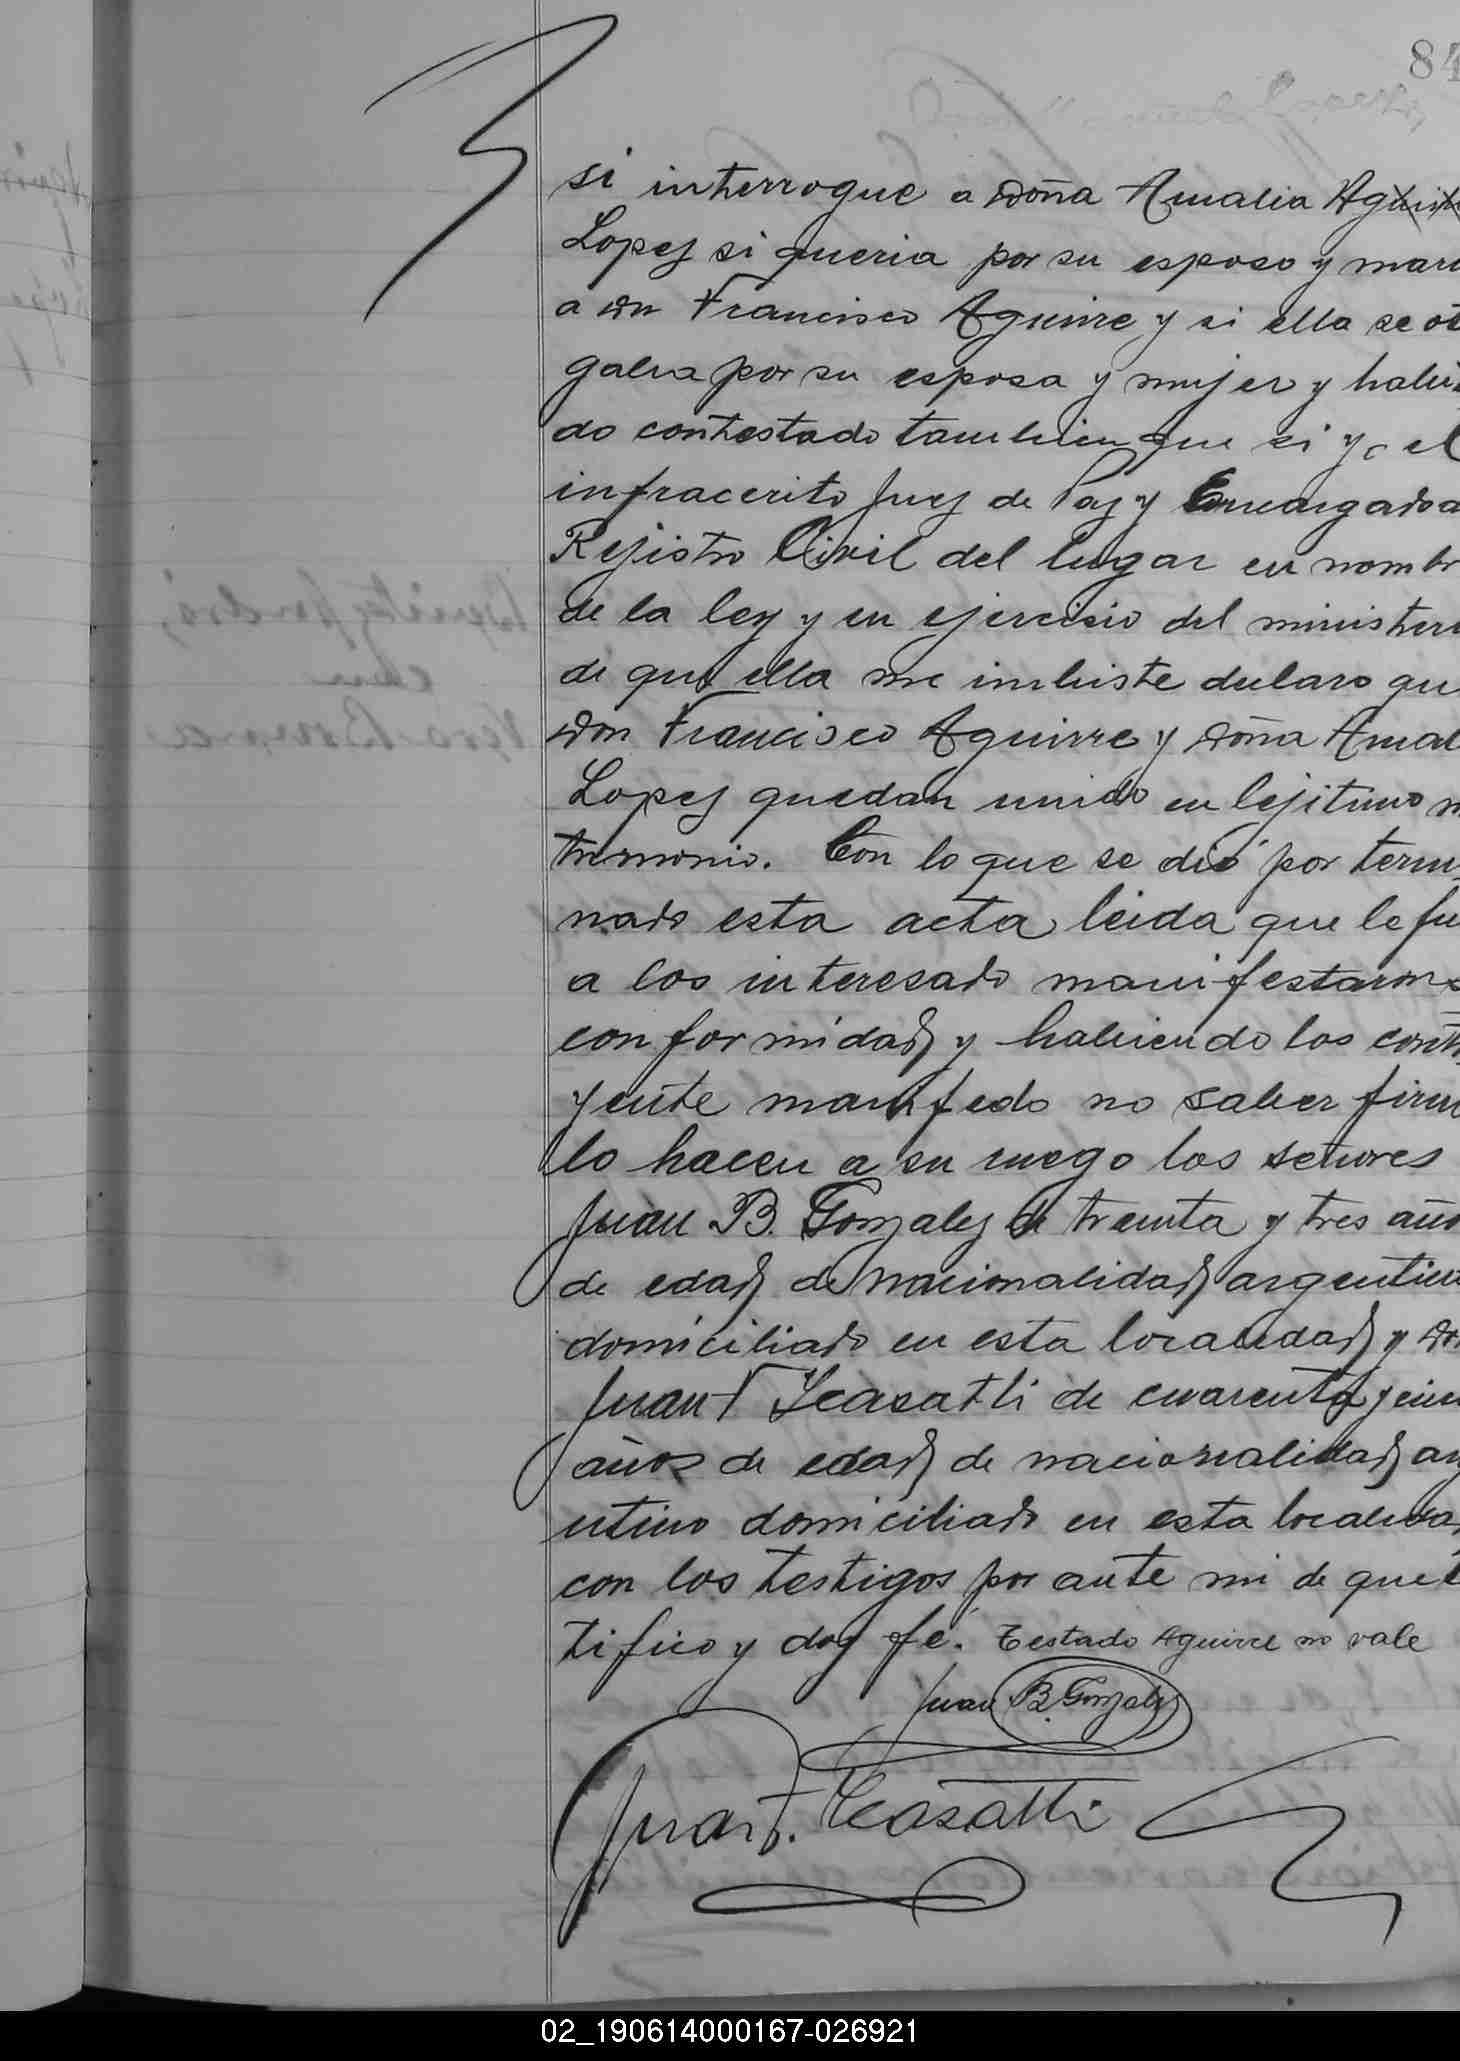 84
si interrogue a Doña Amalia Agui
Lopez si queria por su esposo y mari
a Dn Francisco Aguirre y si ella se ot
gaba por su esposa y mujer y habi
do contestado tambien que si yo el
infracerito Juez de Paz y Encargado a
Rejistro Civil del lugar en nombr
de la ley y en ejercisio del minister
de que ella me imbiste declaro qu
Don Francisco Aguirre y Doña Amal
Lopez quedan unido en lejitimo m
trimonio. Con lo que se dió por termi
nado esta acta leida que le fu
a los interesado manifestaron s
conformidad y habiendo los cont
yente manifedo no saber firm
lo hacen a su ruego los señores
Juan B. Gonzalez de treinta y tres año
de edad de nacionalidad argentin
domiciliado en esta localidad y Do
Juan F Icasatti de cuarenta y cin
años de edad de nacionalidad arg
entino domiciliado en esta localidad
con los testigos por ante mi de que c
tifico y doy fé. Testado Aguirre no vale
Juan B. Gonzalez
Juan F. Icasatti
02_190614000167-026921